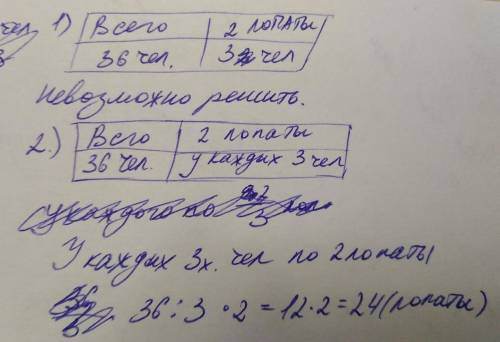 чел
1) Всего 2 лопаты
36 чел. 3 чел
невозможно решить.
2.) Всего 2 лопаты
36 чел. у каждих 3 чел
У каждих 3х. чел по 2 лопаты
36 : 3 • 2 = 12 • 2 = 24 (лопаты)